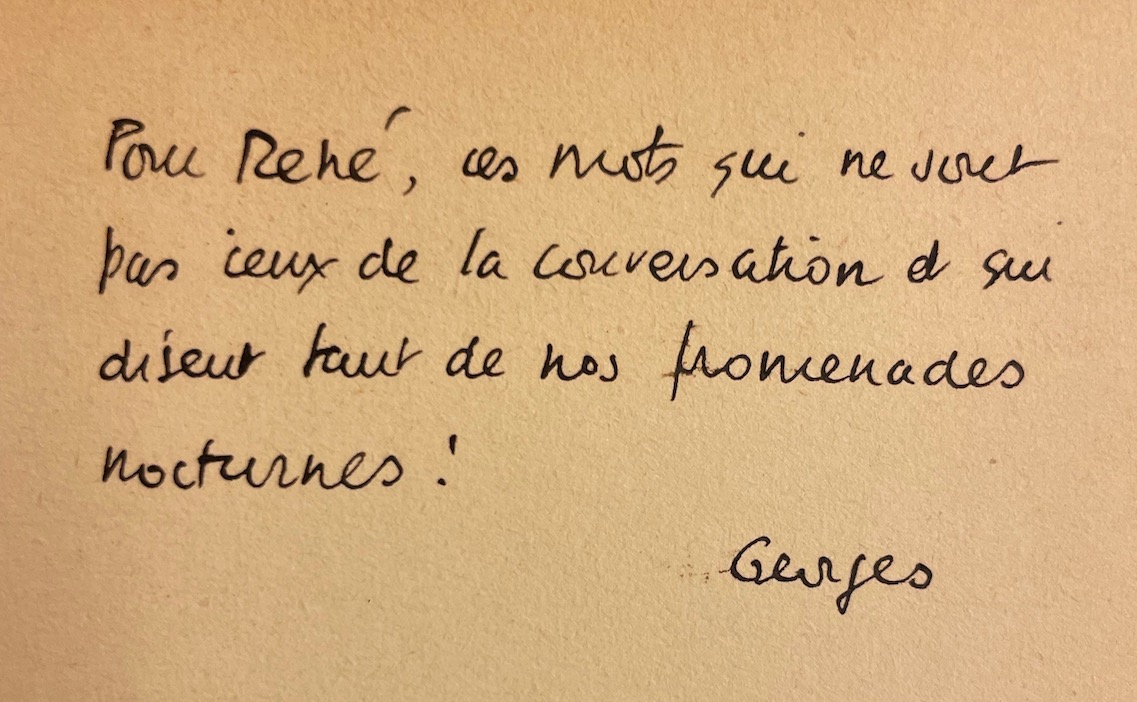 Pour René, ces mots qui ne sont
pas ceux de la conversation et qui
disent tant de nos promenades
nocturnes !
Georges